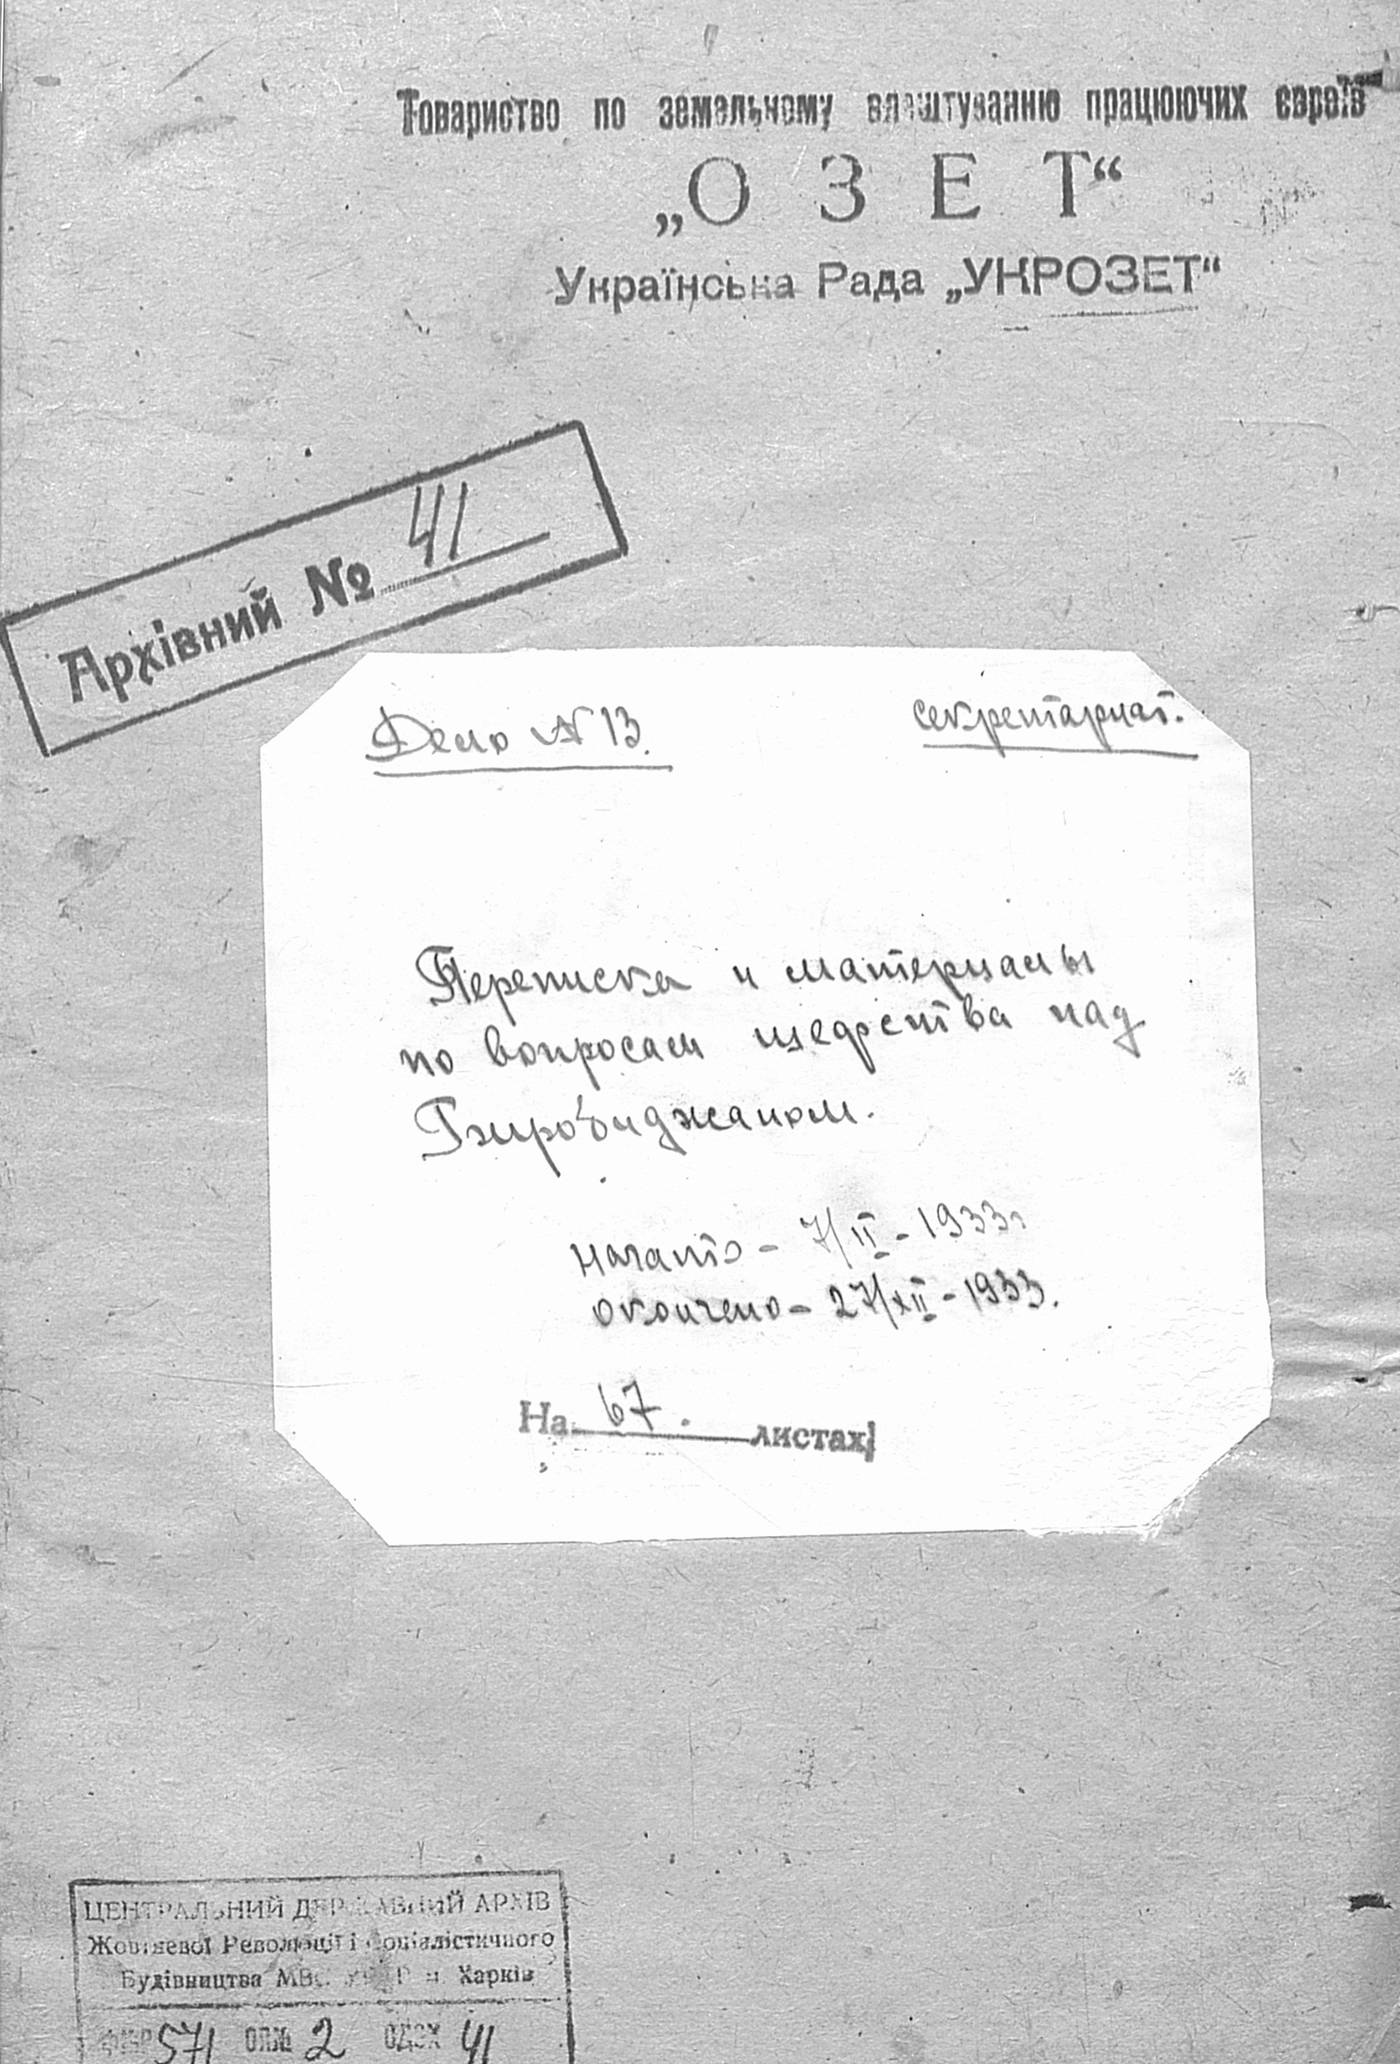 Товариство по земельному влаштуванню працюючих євреїв
„О З Е Т“
Українська Рада „УКРОЗЕТ“
Архівний № 41
Дело № 13.
секретариат.
Переписка и материалы
по вопросам шефства над
Биробиджаном.
Начато - 7/II - 1933г
окончено - 27/XII - 1933.
На 67. листах
ЦЕНТРАЛЬНИЙ ДЕРЖАВНИЙ АРХІВ
Жовтневої Революції і Соціалістичного
Будівництва МВС УРСР м. Харків
ФОНД 571 ОПИС 2 ОД.ЗХ 41